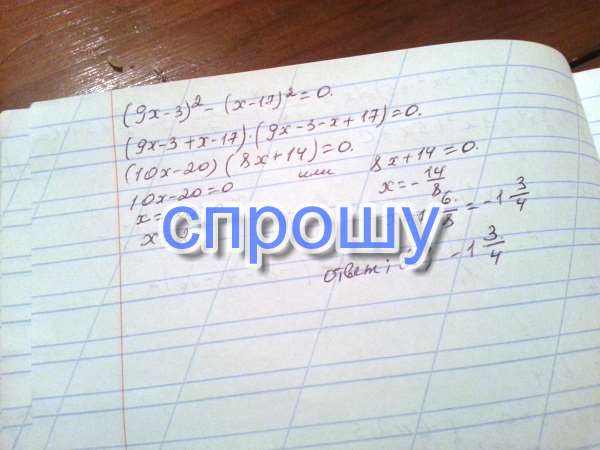 (9x-3)² - (x-17)² = 0.
(9x-3+x-17)(9x-3-x+17)=0.
(10x-20)(8x+14)=0.
10x-20=0 или 8x+14=0.
x= x=-14/8
x -1 6/8 = -1 3/4
спрошу
ответ: -1 3/4